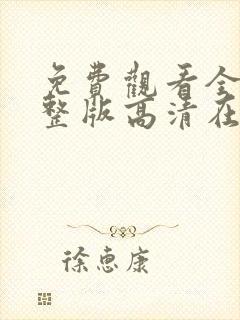 免費觀看全
整版高清在
徐惠康